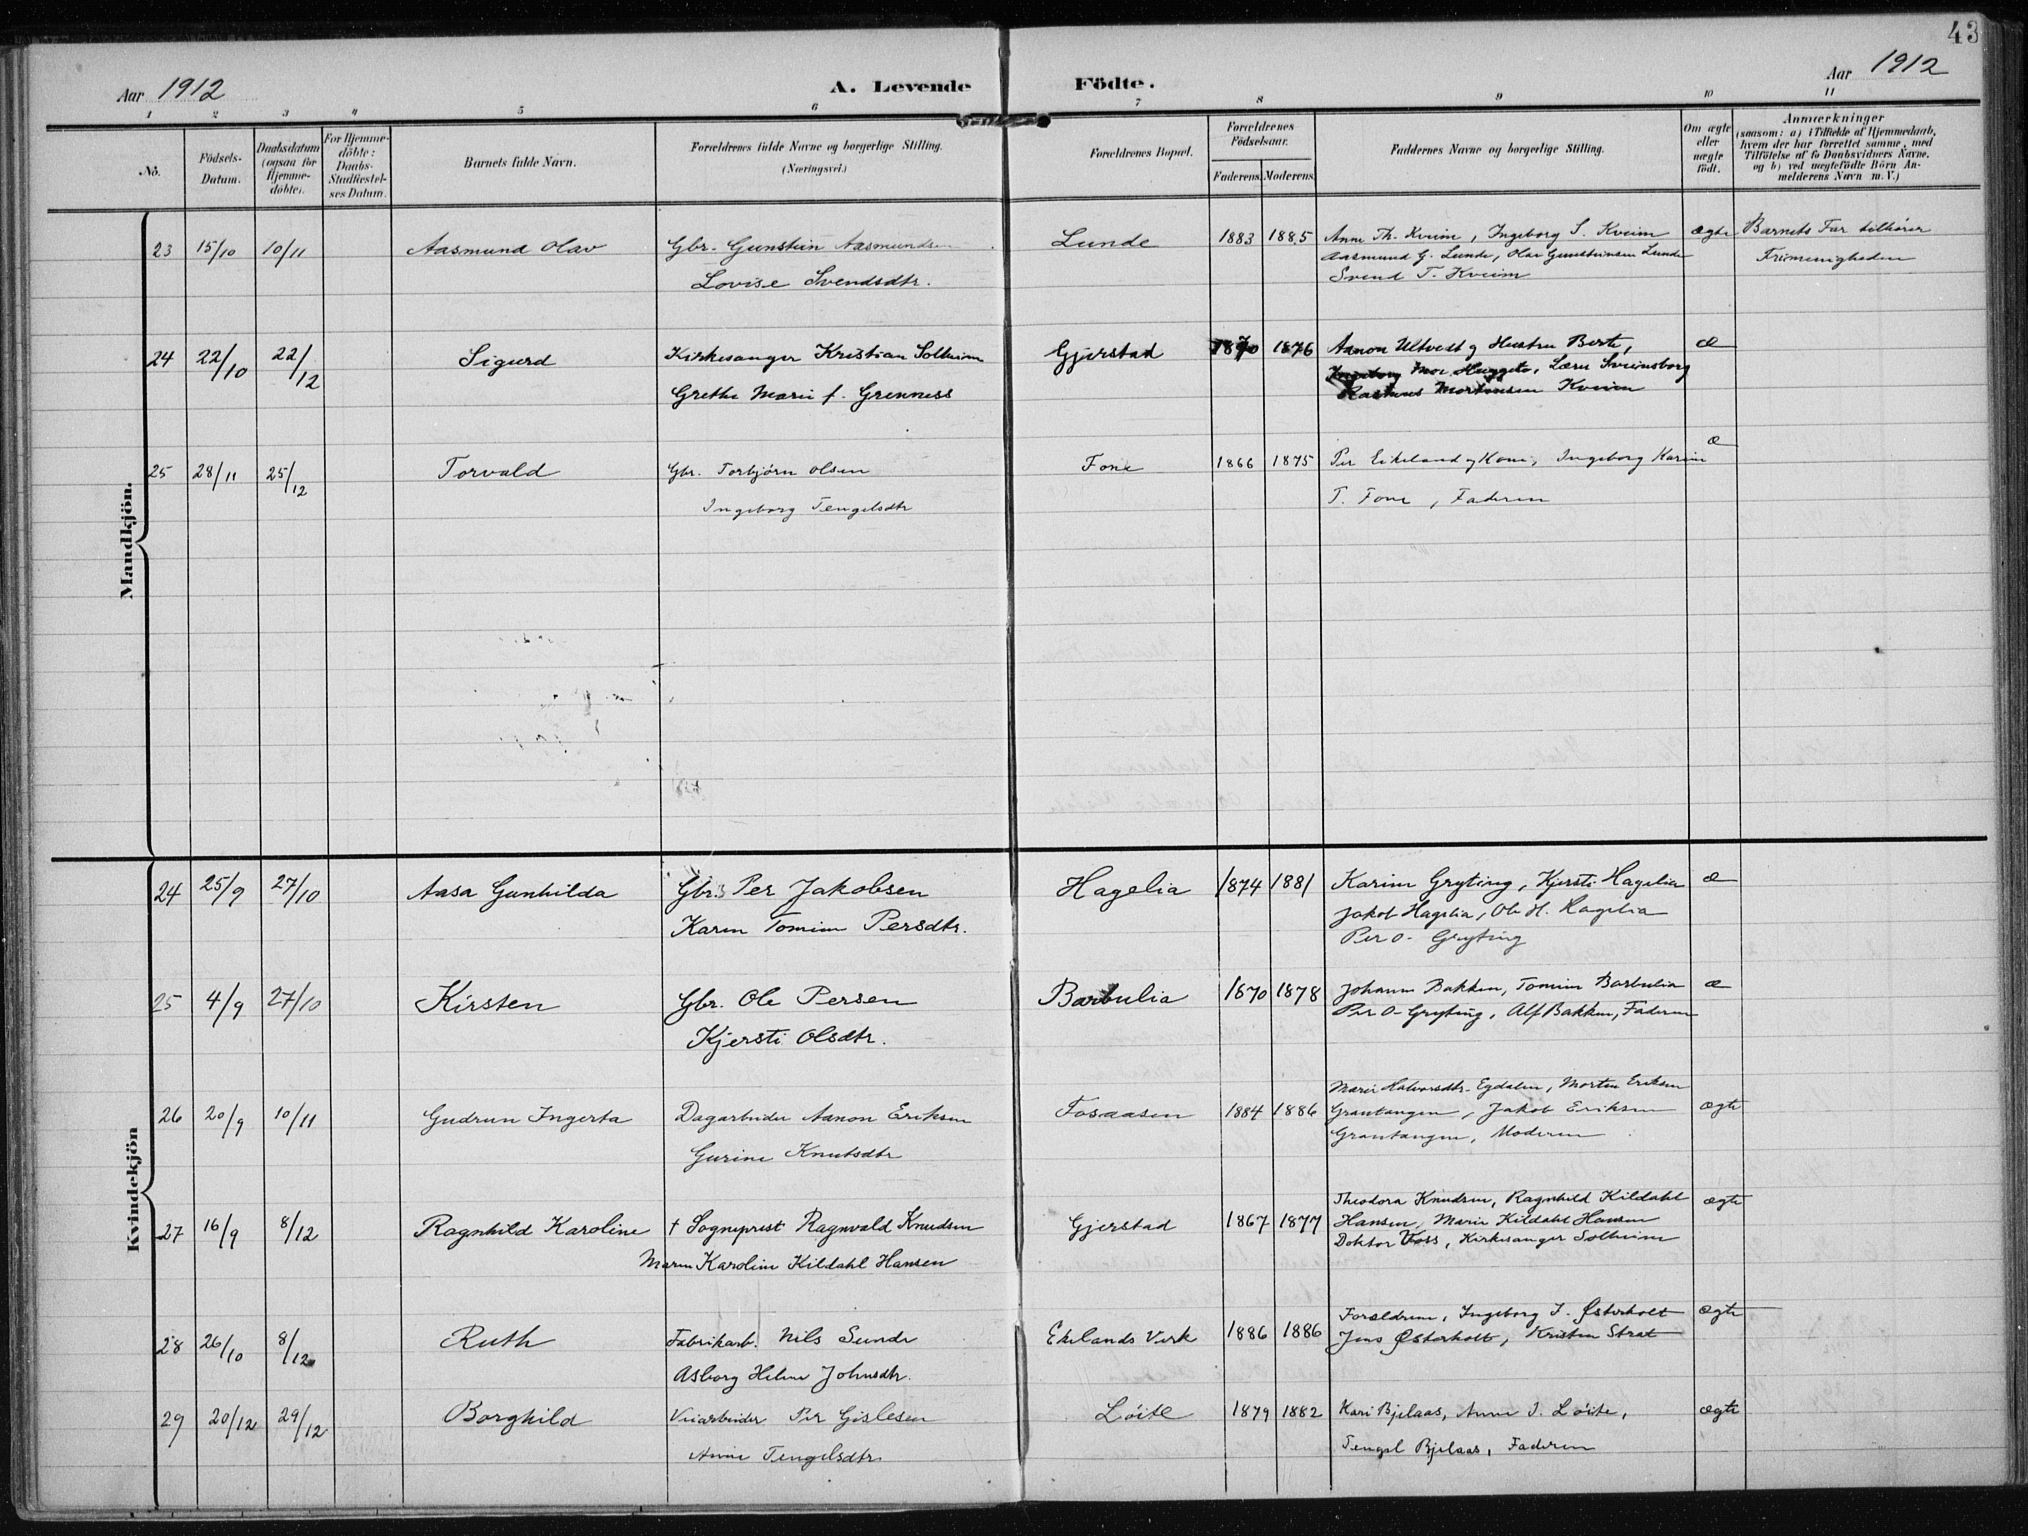 43
Aar 1912
A. Levende Födte.
Aar 1912
1 2 3 4 5 6 7 8 9 10 11
No.
Födsels-Datum.
Daabsdatum (ogsaa for Hjemme-döbte).
For Hjemme-döbte: Daabs-Stadfæstel-ses Datum.
Barnets fulde Navn.
Forældrenes fulde Navne og borgerlige Stilling. (Næringsvei.)
Forældrenes Bopæl.
Forældrenes Födselsaar.
Faderens. Moderens.
Faddernes Navne og borgerlige Stilling.
Om ægte eller uægte födt.
Anmærkninger
(saasom: a) i Tilfælde af Hjemmedaab,
hvem der har forrettet samme, med
Tilföielse af to Daabsvidners Navne,
og b) ved uægtefödte Börn An-
melderens Navn m. V.)
Mandkjön.
23 15/10 10/11 Aasmund Olav Gbr. Gunstein Aasmundsen Lunde 1883 1885 Anne Th. Kveim, Ingeborg S. Kveim ægte Barnets Far tilhører
Aasmund G. Lunde, Olav Gunsteinsen Lunde Frimenigheden
Lovise Svendsdtr. Svend T. Kveim
24 22/10 22/12 Sigurd Kirkesanger Kristian Solheim Gjerstad 1870 1876 Aanon Ultvedt og Hustru Berte, æ
Ingeborg Moe Hugget, Lærer Sveinsborg
Grethe Marie f. Grenness Rasmus Mortensen Kveim
25 28/11 25/12 Torvald Gbr. Torbjørn Olsen Fone 1866 1875 Per Eikeland og Kone, Ingeborg Karine æ
Ingeborg Tengelsdtr T. Fone, Faderen
Kvindekjön
24 25/9 27/10 Aasa Gunhilda Gbr. Per Jakobsen Hagelia 1874 1881 Karine Gryting, Kjersti Hagelia æ
Karen Tomine Persdtr. Jakob Hagelia, Ole H. Hagelia
Per O. Gryting
25 4/9 27/10 Kirsten Gbr. Ole Persen Barbulia 1870 1878 Johanne Bakken, Tomine Barbulia æ
Kjersti Olsdtr. Per O. Gryting, Alf Bakken, Faderen
26 20/9 10/11 Gudrun Ingerta Dagarbeider Aanon Eriksen Fosaasen 1884 1886 Marie Halvorsdtr. Egdalen, Morten Eriksen ægte
Grantangen, Jakob Eriksen
Gurine Knutsdtr Grantangen, Moderen
27 16/9 8/12 Ragnhild Karoline † Sogneprest Ragnvald Knudsen Gjerstad 1867 1877 Theodora Knudsen, Ragnhild Kildahl ægte
Hansen, Marie Kildahl Hansen
Maren Karoline Kildahl Hansen Doktor Voss, Kirkesanger Solheim
28 26/10 8/12 Ruth Fabrikarb. Nils Sunde Ekelands Verk 1886 1886 Forældrene, Ingeborg J. Østerholt ægte
Asborg Helene Johnsdtr. Jens Østerholt, Kristen Strat
29 20/12 29/12 Borghild Veiarbeider Per Gislesen Løite 1879 1882 Kari Bjelaas, Anne J. Løite, ægte
Anne Tengelsdtr. Tengel Bjelaas, Faderen